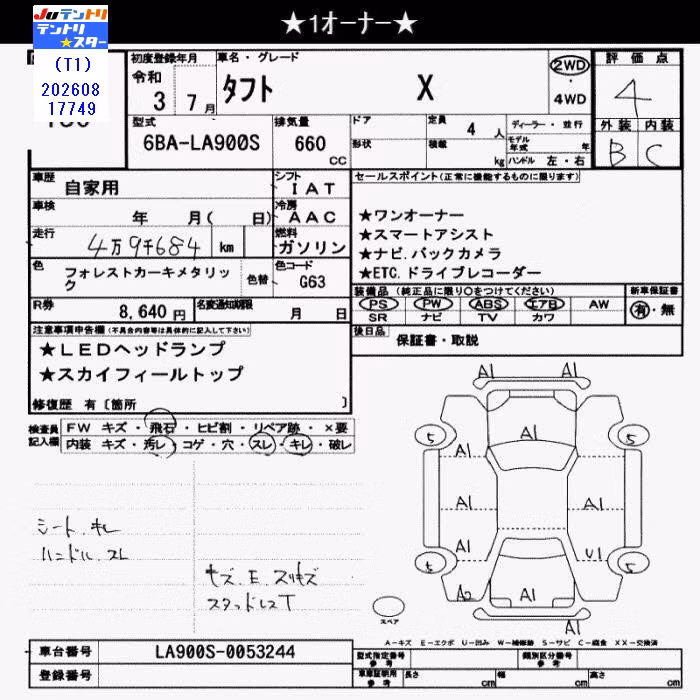 ★1オーナー★
JUテントリ
テントリ
★スター
(T1)
202608
17749
初度登録年月
令和
3 7月
車名・グレード
タフト X
2WD
4WD
評価点
4
外装 内装
B C
型式
6BA-LA900S
排気量
660
CC
ドア
形状
定員
4 人
積載
kg
ディーラー・並行
モデル年式 年
ハンドル 左・右
車歴
自家用
シフト
IAT
車検
年 月( 日)
冷房
AAC
走行
4万9千684 km
燃料
ガソリン
色
フォレストカーキメタリック
色替
色コード
G63
R券
8,640 円
名変通知期限
月 日
セールスポイント(正常に機能するものに限ります)
★ワンオーナー
★スマートアシスト
★ナビ.バックカメラ
★ETC.ドライブレコーダー
装備品(純正品に限り○をつけてください)
PS PW ABS エアB AW
SR ナビ TV カワ
新車保証書
有・無
後日品
保証書・取説
注意事項申告欄(不具合内容等は具体的に記入して下さい)
★LEDヘッドランプ
★スカイフィールトップ
修復歴 有〔箇所 〕
検査員
記入欄
FW キズ・飛石・ヒビ割・リペア跡・×要
内装 キズ・汚レ・コゲ・穴・スレ・キレ・破レ
シート.キレ
ハンドル.スレ
キズ.E.スリキズ
スタッドレスT
A1 A1
A1
5 5
A1
A1 A1 A1
A1 U1
5 5
A2 A1
A1
スペア
A-キズ E-エクボ U-凹み W-補修跡 S-サビ C-腐食 XX-交換済
車台番号
LA900S-0053244
登録番号
型式指定番号
参考
類別区分番号
参考
車庫証明用
参考
長さ cm
幅 cm
高さ cm